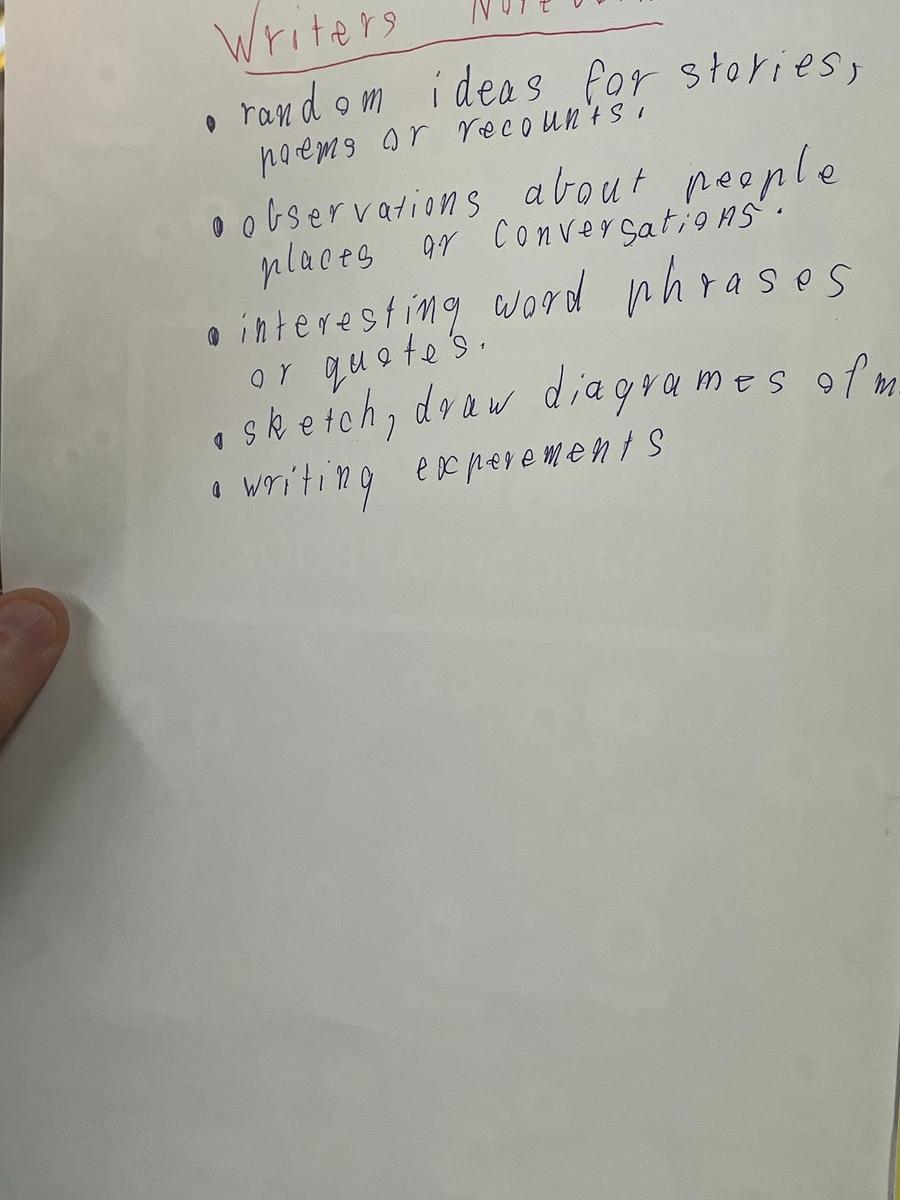 Writers
• random ideas for stories,
poems or recounts.
• observations about people
places or conversations.
• interesting word phrases
or quotes.
• sketch, draw diagrames of
• writing experements